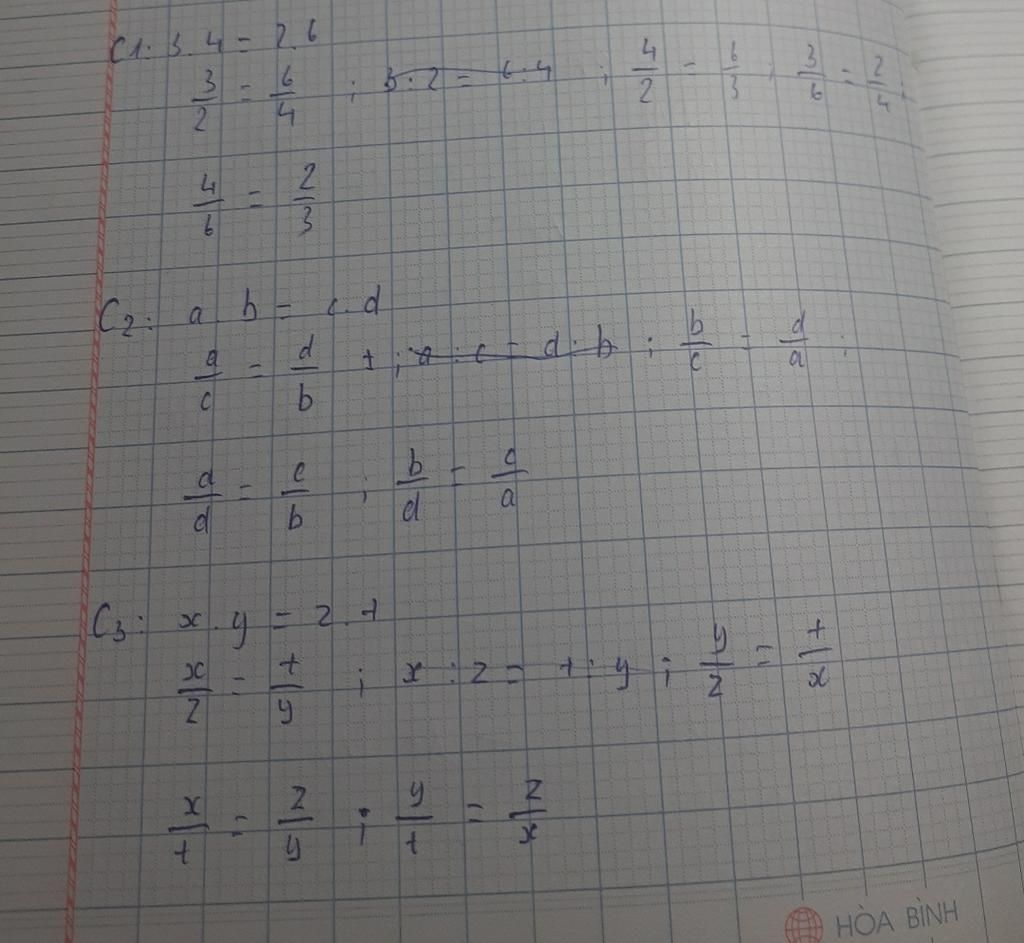 C1: 3.4 = 2.6
3/2 = 6/4 ; 3:2 = 6:4 ; 4/2 = 6/3 ; 3/6 = 2/4 ;
4/6 = 2/3
C2: a b = c.d
a/c = d/b + ; a:c = d:b ; b/c = d/a ;
a/d = c/b ; b/d = c/a
C3: x.y = z.t
x/z = t/y ; x:z = t:y ; y/z = t/x
x/t = z/y ; y/t = z/x
HÒA BÌNH